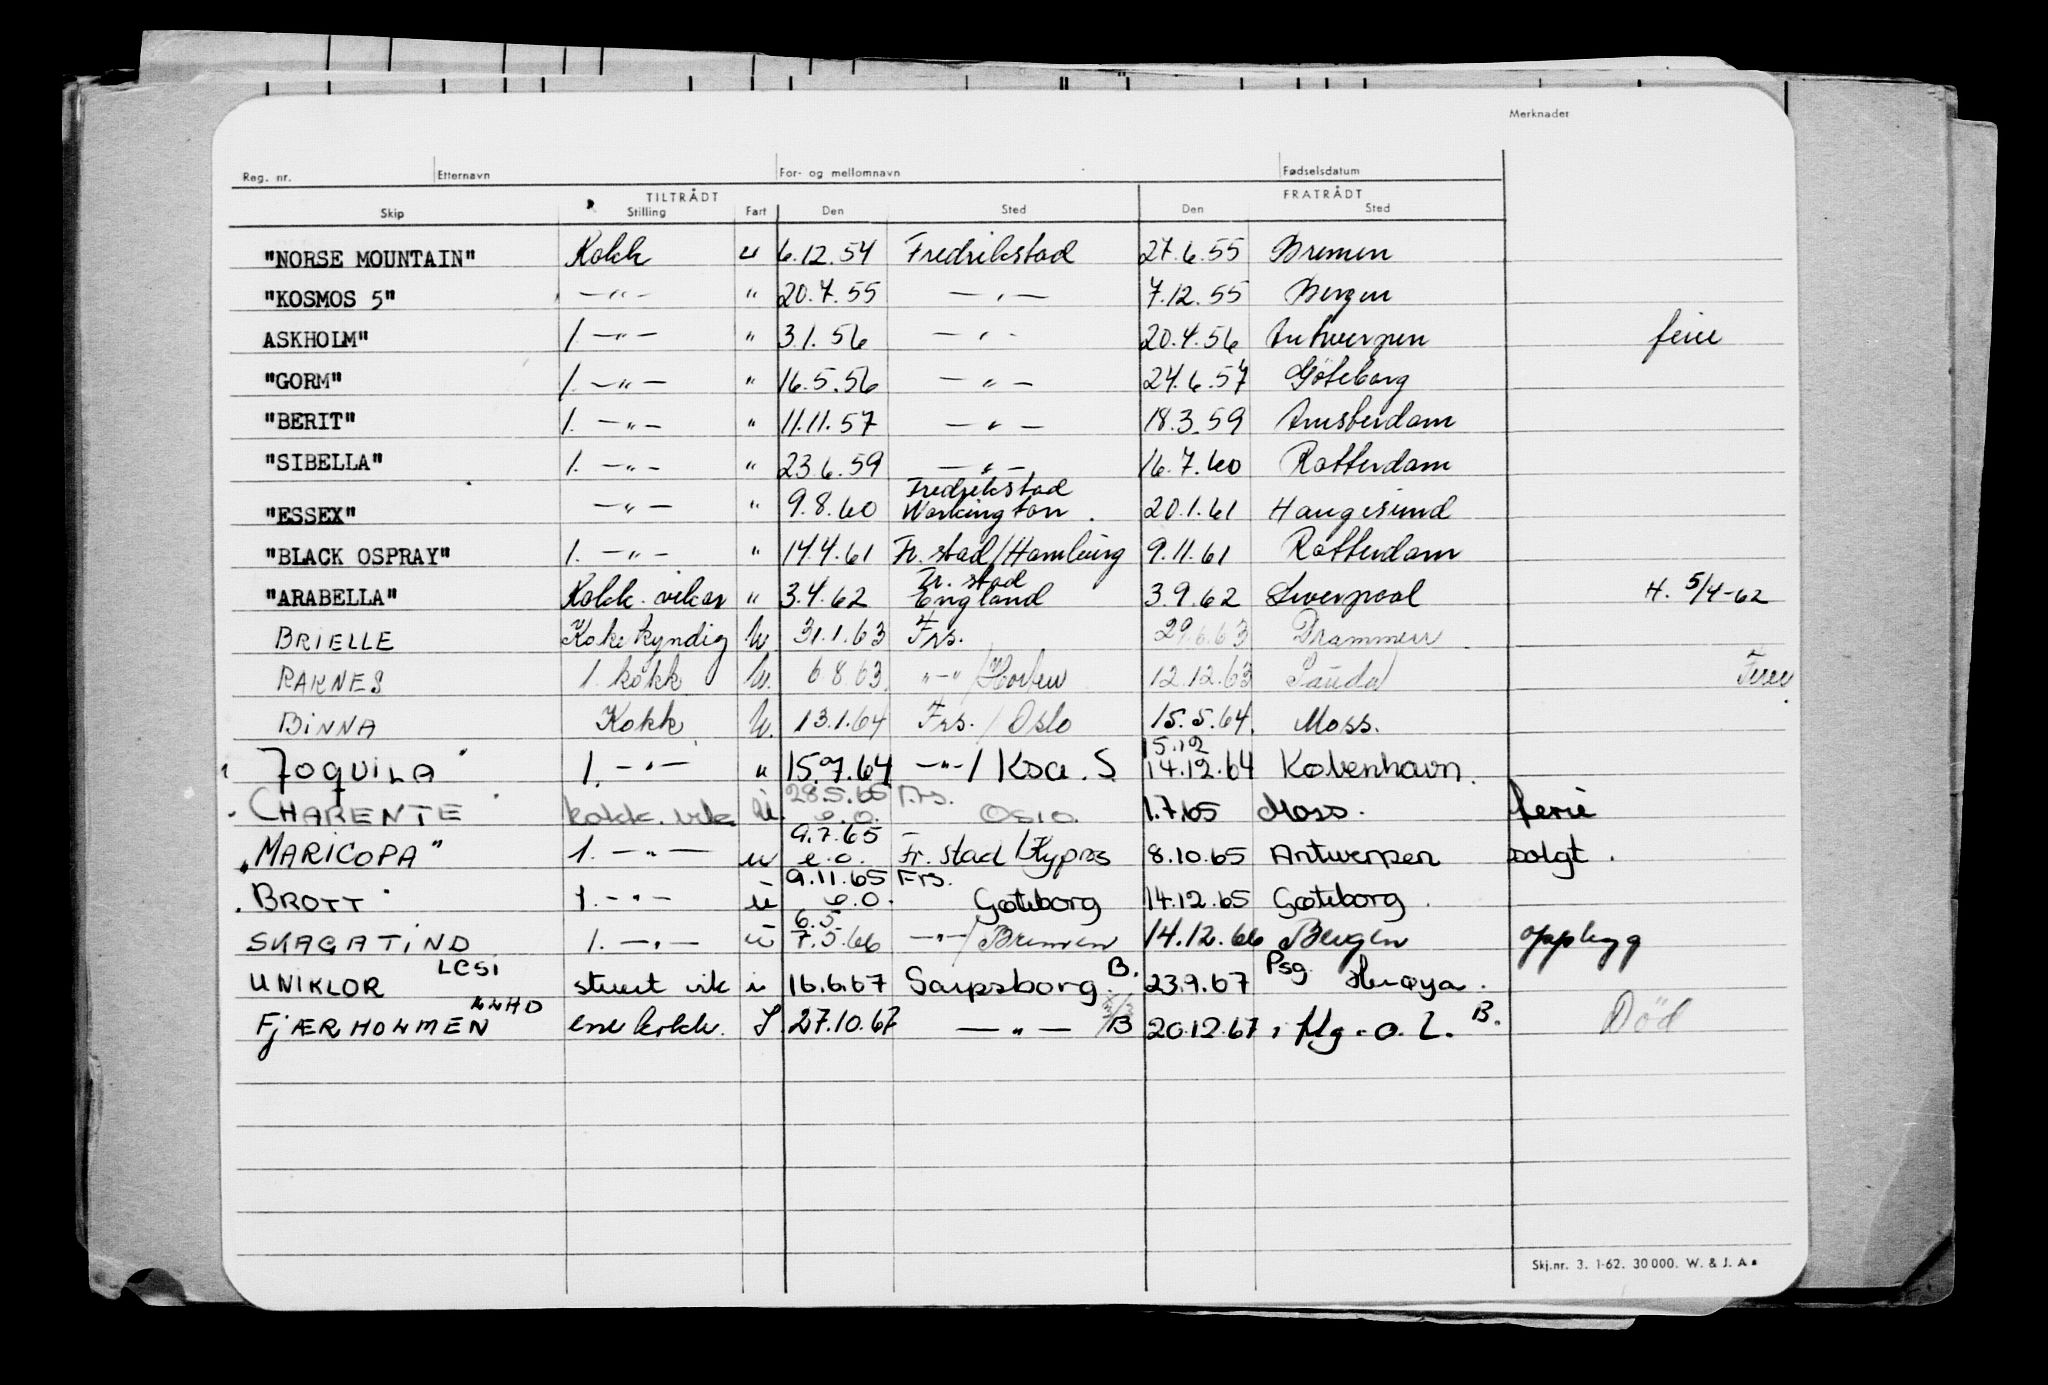 Merknader
Reg. nr. Etternavn For- og mellomnavn Fødselsdatum
TILTRÅDT FRATRÅDT
Skip Stilling Fart Den Sted Den Sted
"NORSE MOUNTAIN" Kokk u 6.12.54 Fredrikstad 27.6.55 Bremen
"KOSMOS 5" —"— " 20.7.55 —"— 7.12.55 Bergen
ASKHOLM" 1. —"— " 3.1.56 —"— 20.4.56 Antwerpen ferie
"GORM" 1. —"— " 16.5.56 —"— 24.6.57 Göteborg
"BERIT" 1. —"— " 11.11.57 —"— 18.3.59 Amsterdam
"SIBELLA" 1. —"— " 23.6.59 —"— 16.7.60 Rotterdam
Fredrikstad
"ESSEX" —"— " 9.8.60 Workington. 20.1.61 Haugesund
"BLACK OSPRAY" 1. —"— " 14.4.61 Fr. stad/Hamburg 9.11.61 Rotterdam
Fr. stad
"ARABELLA" Kokk. vikar " 3.4.62 England 3.9.62 Liverpool H. 5/4-62
BRIELLE Kokekyndig U. 31.1.63 Frs. 29.6.63 Drammen
RAKNES 1. kokk U. 6.8.63 "-"/Horten 12.12.63 Sauda Ferie
BINNA Kokk U. 13.1.64 Frs. / Oslo 15.5.64. Moss.
15.12
" JOQUILA " 1. —"— " 15.9.64 —"—/ Ksa. S 14.12.64 København.
28.5.65 Frs.
" CHARENTE " kokk. vik. U. e.o. Oslo. 1.7.65 Moss. ferie
9.7.65
"MARICOPA" 1. —"— u e.o. Fr. stad/Kypros 8.10.65 Antwerpen solgt.
9.11.65 Frs.
" BROTT " 1. —"— u e.o. Gøteborg 14.12.65 Gøteborg.
6.5
SKAGATIND 1. —"— u 7.5.66 —"—/Bremen 14.12.66 Bergen opphyg
LCSI B. Psg.
UNIKLOR stuert vik u 16.6.67 Sarpsborg. 23.9.67 Herøya.
LLHD B.
FJÆRHOLMEN enekokk. I 27.10.67 —"— B 20.12.67 Mg. o. L. Död
Skj.nr. 3. 1-62. 30 000. W. & J. A